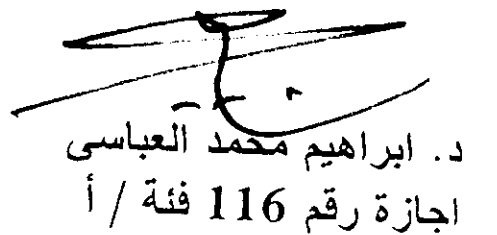 د. ابراهيم محمد العباسى
اجازة رقم 116 فئة / أ